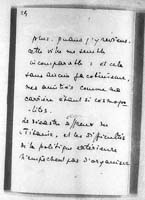 plus, quand j'y reviens.
cette ville me semble
incomparable : et cela
sans aucun
mes amitiés comme ma
carrière étant si cosmopo-
lites.
Le désastre affreux du
Titanic, et les difficultés
de la politique extérieure
n'empêchent pas d'organiser